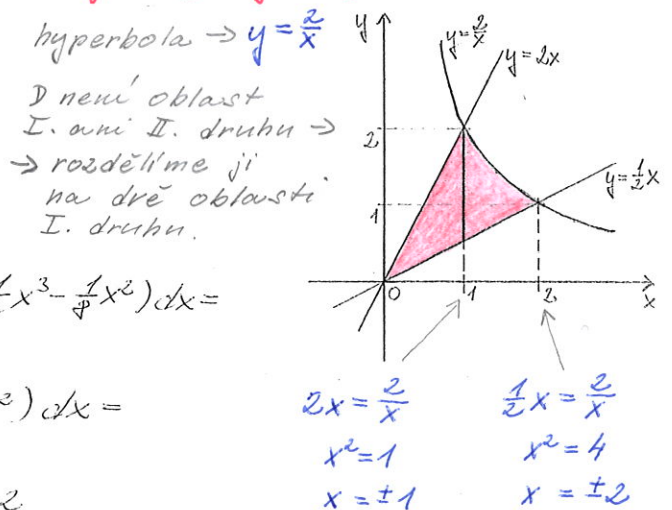 hyperbola → y = 2/x
D není oblast
I. ani II. druhu →
→ rozdělíme ji
na dvě oblasti
I. druhu.
x³ - 1/8 x²) dx =
²) dx =
2
y
y = 2/x
y = 2x
y = 1/2 x
2
1
0
1
2
x
2x = 2/x
x² = 1
x = ±1
1/2 x = 2/x
x² = 4
x = ±2